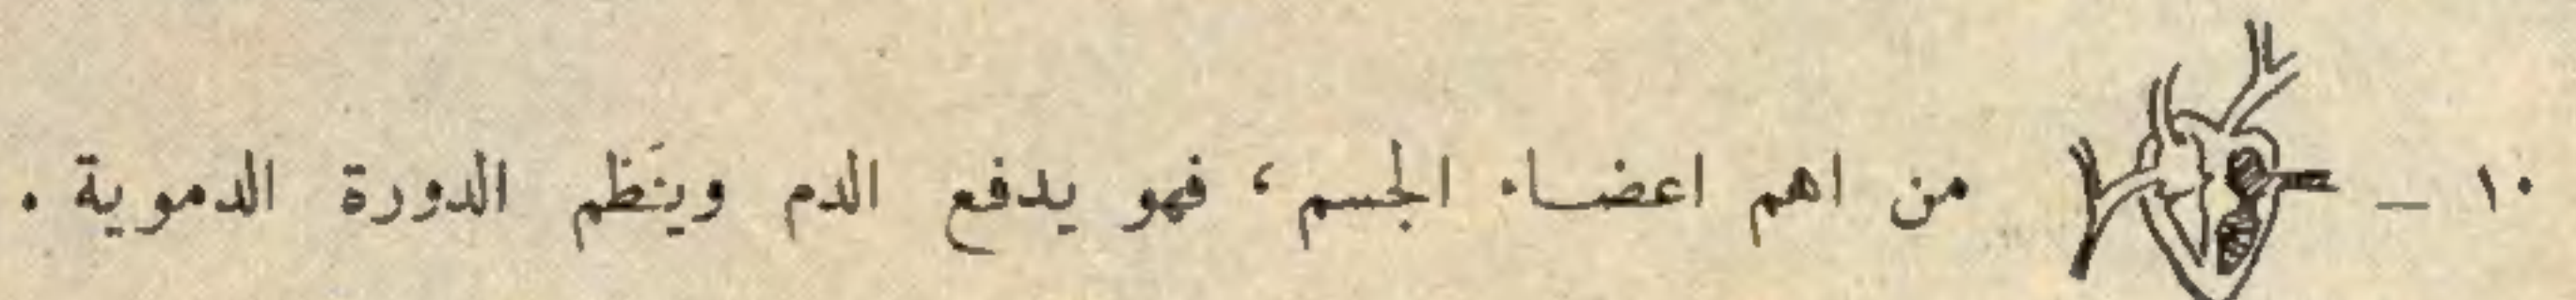 ١٠ – من اهم اعضاء الجسم ، فهو يدفع الدم وينَظم الدورة الدموية .